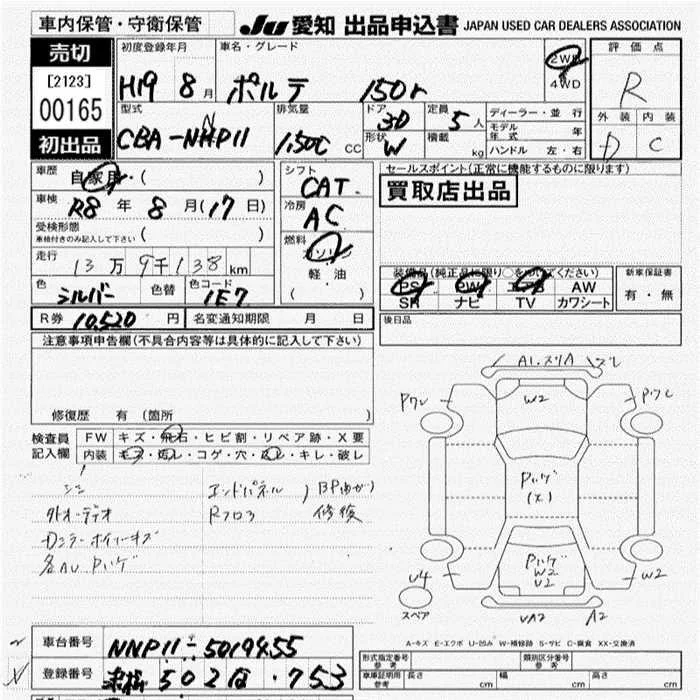 車内保管・守衛保管
JU 愛知 出品申込書 JAPAN USED CAR DEALERS ASSOCIATION
売切
[2123]
00165
初出品
初度登録年月 車名・グレード
H19 8月 ポルテ 150r
2WD
4WD
評価点
R
外装 内装
D C
型式 排気量 ドア 定員
CBA-NNP11 1,500 CC 3D 5人
形状 W 積載 kg
ディーラー・並行
モデル年式 年
ハンドル 左・右
車歴 自家用 ( )
車検 R8年 8月(17日)
受検形態
車検付きのみ記入して下さい ( )
走行 13万9千138km
色 シルバー 色替 色コード 1E7
シフト CAT.
冷房 AC
燃料 ガソリン
軽油
( )
セールスポイント(正常に機能するものに限ります)
買取店出品
装備品(純正品に限り○を付けてください)
PS PW エアB AW
SR ナビ TV カワシート
新車保証書
有・無
R券 10,520円 名変通知期限 月 日
後日品
注意事項申告欄(不具合内容等は具体的に記入して下さい)
修復歴 有 (箇所 )
検査員記入欄
FW キズ・飛石・ヒビ割・リペア跡・X要
内装 キズ・汚レ・コゲ・穴・返レ・キレ・破レ
外オーディオ
エンドパネル
Rフロア
修復
Dミラーホイールキズ
各AU Pハゲ
W2
Pハゲ
(X)
Pハゲ
W2
U2
U4
W2
スペア
VA2
A2
A-キズ E-エクボ U-凹み W-補修跡 S-サビ C-腐食 XX-交換済
車台番号 NNP11-5019455
登録番号 豊橋 502 な・753
形式指定番号
参考
類別区分番号
参考
車庫証明用
参考
長さ cm 幅 cm 高さ cm